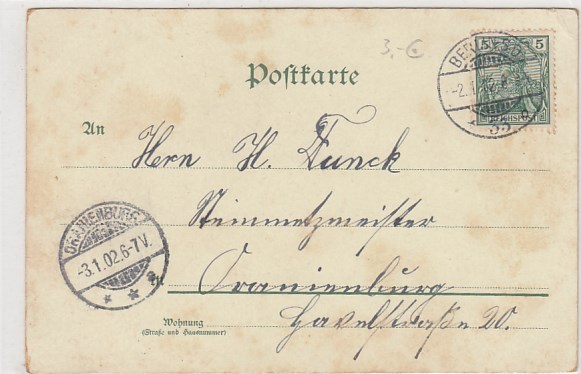 3,- €
Postkarte
5 5
-2.1.02.
An
Herrn H. Funck
Steinmetzmeister
ORANIENBURG
-3.1.02.6-7V.
in Oranienburg
Wohnung
(Straße und Hausnummer)
Havelstraße 20.